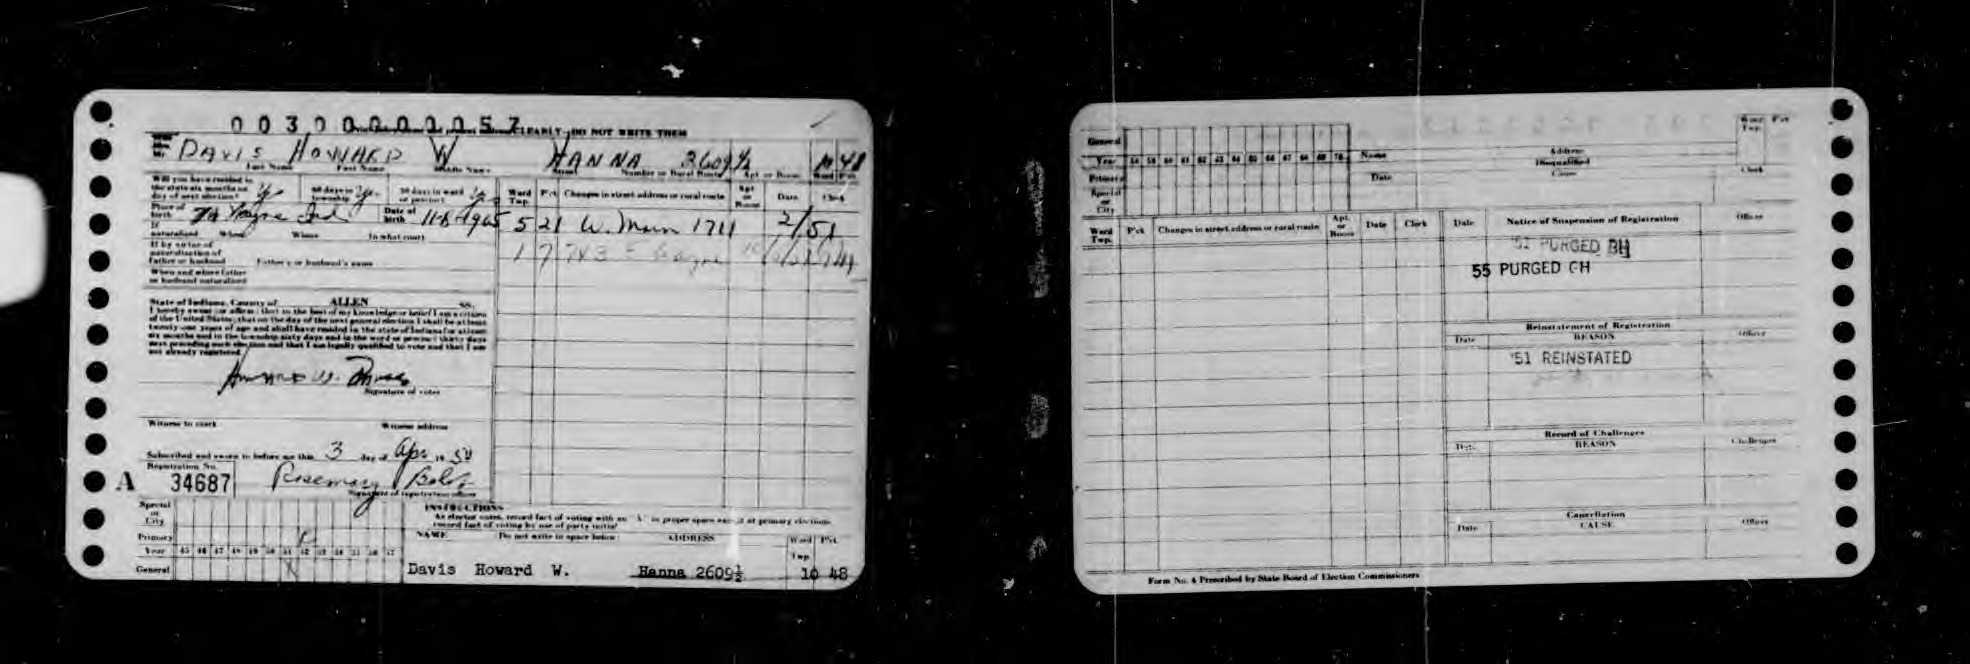 0030000057
CLEARLY DO NOT WRITE THEM
Mr. DAVIS HOWARD W HANNA 2609½ 10 48
Last Name First Name Middle Name Street Number or Rural Route Apt or Room Ward Pct
Will you have resided in
the state six months on
day of next election? Yes 60 days in township Yes 30 days in ward or precinct Yes
Ward Twp. Pct Changes in street address or rural route Apt or Room Date Clerk
Place of birth Ft Wayne Ind Date of birth 1905
5 21 W. Main 1711 2/51
If naturalized When Where In what court
1 7 743 E Wayne
If by virtue of
naturalization of
Father or husband Father's or husband's name
When and where father
or husband naturalized
State of Indiana, County of ALLEN ss.
I hereby swear (or affirm) that to the best of my knowledge or belief I am a citizen
of the United States; that on the day of the next general election I shall be at least
twenty-one years of age and shall have resided in the state of Indiana for at least
six months and in the township sixty days and in the ward or precinct thirty days
next preceding such election and that I am legally qualified to vote and that I am
not already registered.
Howard W. Davis
Signature of voter
Witness to mark Witness address
Subscribed and sworn to before me this 3 day of Apr 19
Registration No.
A 34687 Rosemary
Signature of registration officer
Special or City
INSTRUCTIONS
As elector votes, record fact of voting with an "X" in proper space except at primary elections
record fact of voting by use of party initial
Primary R
NAME Do not write in space below ADDRESS Ward Twp. Pct.
Year 45 46 47 48 49 50 51 52 53 54 55 56 57
General X
Davis Howard W. Hanna 2609½ 10 48
General
Year 58 59 60 61 62 63 64 65 66 67 68 69 70
Primary
Special or City
Name Address
Disqualified
Date Cause Clerk
Ward Twp. Pct
Ward Twp. P'ct Changes in street address or rural route Apt. or Room Date Clerk
Date Notice of Suspension of Registration Officer
'51 PURGED BH
55 PURGED GH
Reinstatement of Registration
Date REASON Officer
'51 REINSTATED
Record of Challenges
Date REASON Challenger
Cancellation
Date CAUSE Officer
Form No. 4 Prescribed by State Board of Election Commissioners